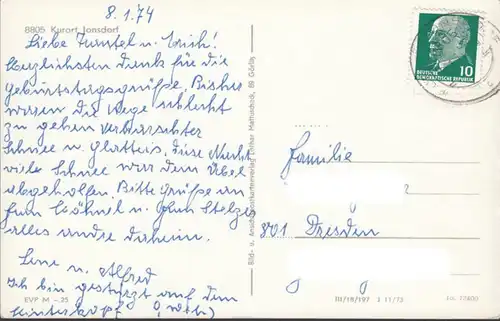 8.1.74
8805 Kurort Jonsdorf
Liebe u. Erich!
Herzlichsten Dank für die
Geburtstagsgrüße. Bisher
waren die Wege schlecht
zu gehen verharschter
Schnee u. Glatteis, diese Nacht
viel Schnee war dem Übel
abgeholfen. Bitte Grüße an
Fam u. Fam Stelzer
alles andre daheim.
u. Alfred
Ich bin gestürzt auf den
Hinterkopf
EVP M -.25
Bild- u. Ansichtskartenverlag 89 Görlitz
10
DEUTSCHE
DEMOKRATISCHE REPUBLIK
Familie
801 Dresden
III/18/197 1 11/73